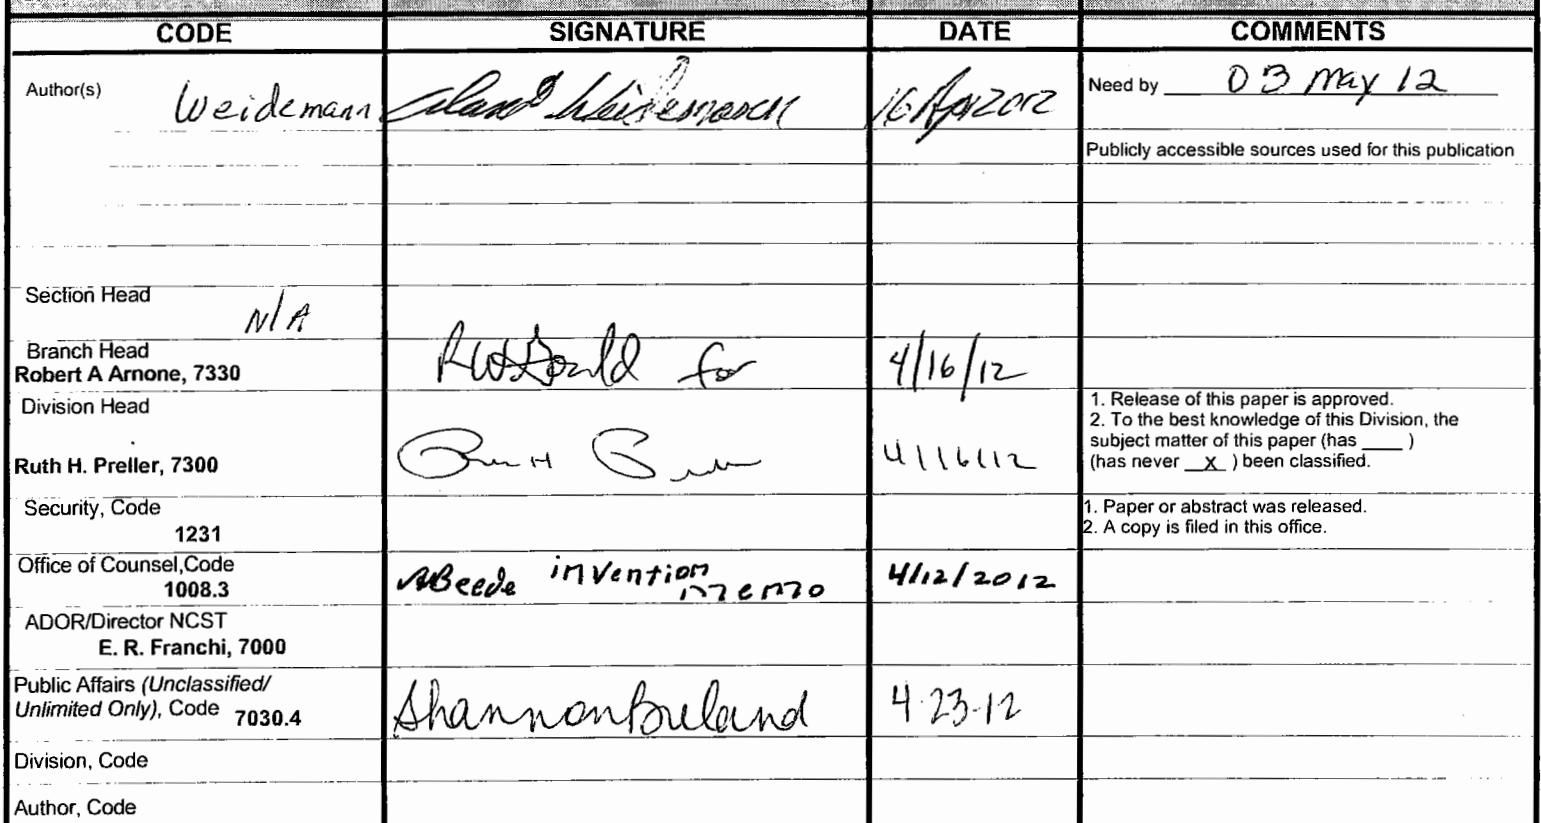 CODE SIGNATURE DATE COMMENTS
Author(s) Weidemann Alan Weidemann 16 Apr 2012 Need by 03 May 12
Publicly accessible sources used for this publication
Section Head
N/A
Branch Head
Robert A Arnone, 7330 RW Gould for 4/16/12
Division Head
1. Release of this paper is approved.
2. To the best knowledge of this Division, the
subject matter of this paper (has ____ )
(has never X ) been classified.
Ruth H. Preller, 7300 Ruth H Preller 4/16/12
Security, Code
1231
1. Paper or abstract was released.
2. A copy is filed in this office.
Office of Counsel,Code
1008.3 ABeede invention memo 4/12/2012
ADOR/Director NCST
E. R. Franchi, 7000
Public Affairs (Unclassified/
Unlimited Only), Code 7030.4 Shannon Breland 4-23-12
Division, Code
Author, Code